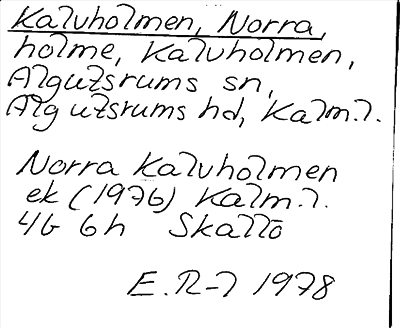 Kalvholmen, Norra,
holme, Kalvholmen,
Algutsrums sn,
Algutsrums hd, Kalm.l.
Norra Kalvholmen
ek (1976) Kalm.l.
4G 6h Skallö
E.R-l 1978